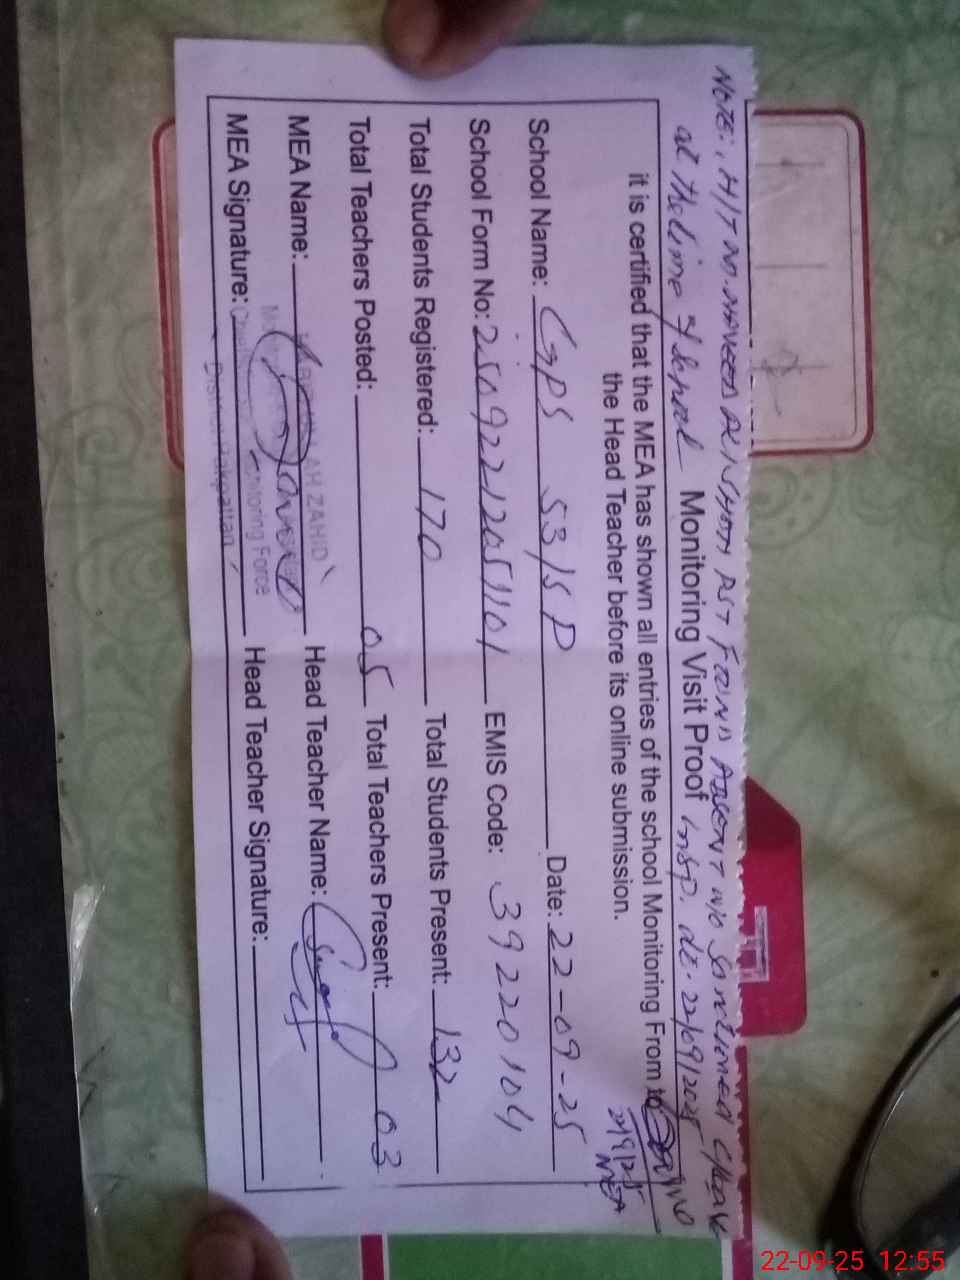 Note:, H/T M. NAVEED PST FOUND ABSENT w/o Sanctioned C/Leave
at the time of Insp. dt. 22/09/2025
Monitoring Visit Proof
it is certified that the MEA has shown all entries of the school Monitoring From to
the Head Teacher before its online submission.
22/9/25
MEA
School Name: GPS 53/SP Date: 22-09-25
School Form No: 25092212051101 EMIS Code: 39220104
Total Students Registered: 170 Total Students Present: 132
Total Teachers Posted: 05 Total Teachers Present: 03
MEA Name: Head Teacher Name:
AH ZAHID
MEA Signature: Head Teacher Signature:
Monitoring Force
District Pakpattan
22-09-25 12:55